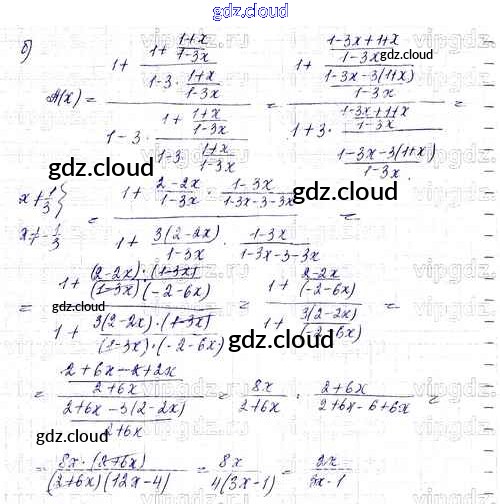 gdz.cloud
б) A(x) = (1 + (1 + (1+x)/(1-3x))/(1-3·(1+x)/(1-3x)))/(1-3·(1 + (1+x)/(1-3x))/(1-3·(1+x)/(1-3x))) = (1 + ((1-3x+1+x)/(1-3x))/((1-3x-3(1+x))/(1-3x)))/(1+3·((1-3x+1+x)/(1-3x))/((1-3x-3(1+x))/(1-3x))) =
gdz.cloud
gdz.cloud
x≠1/3 } x≠-1/3 = (1 + (2-2x)/(1-3x) · (1-3x)/(1-3x-3-3x))/(1 + 3(2-2x)/(1-3x) · (1-3x)/(1-3x-3-3x)) =
= (1 + (2-2x)·(1-3x)/((1-3x)(-2-6x)))/(1 + 3(2-2x)·(1-3x)/((1-3x)·(-2-6x))) = (1 + (2-2x)/(-2-6x))/(1 + 3(2-2x)/(-2-6x)) =
gdz.cloud
gdz.cloud
= ((2+6x-x+2x)/(2+6x))/((2+6x-3(2-2x))/(2+6x)) = 8x/(2+6x) · (2+6x)/(2+6x-6+6x) =
gdz.cloud
gdz.cloud
= 8x·(2+6x)/((2+6x)(12x-4)) = 8x/(4(3x-1)) = 2x/(3x-1)
gdz.cloud